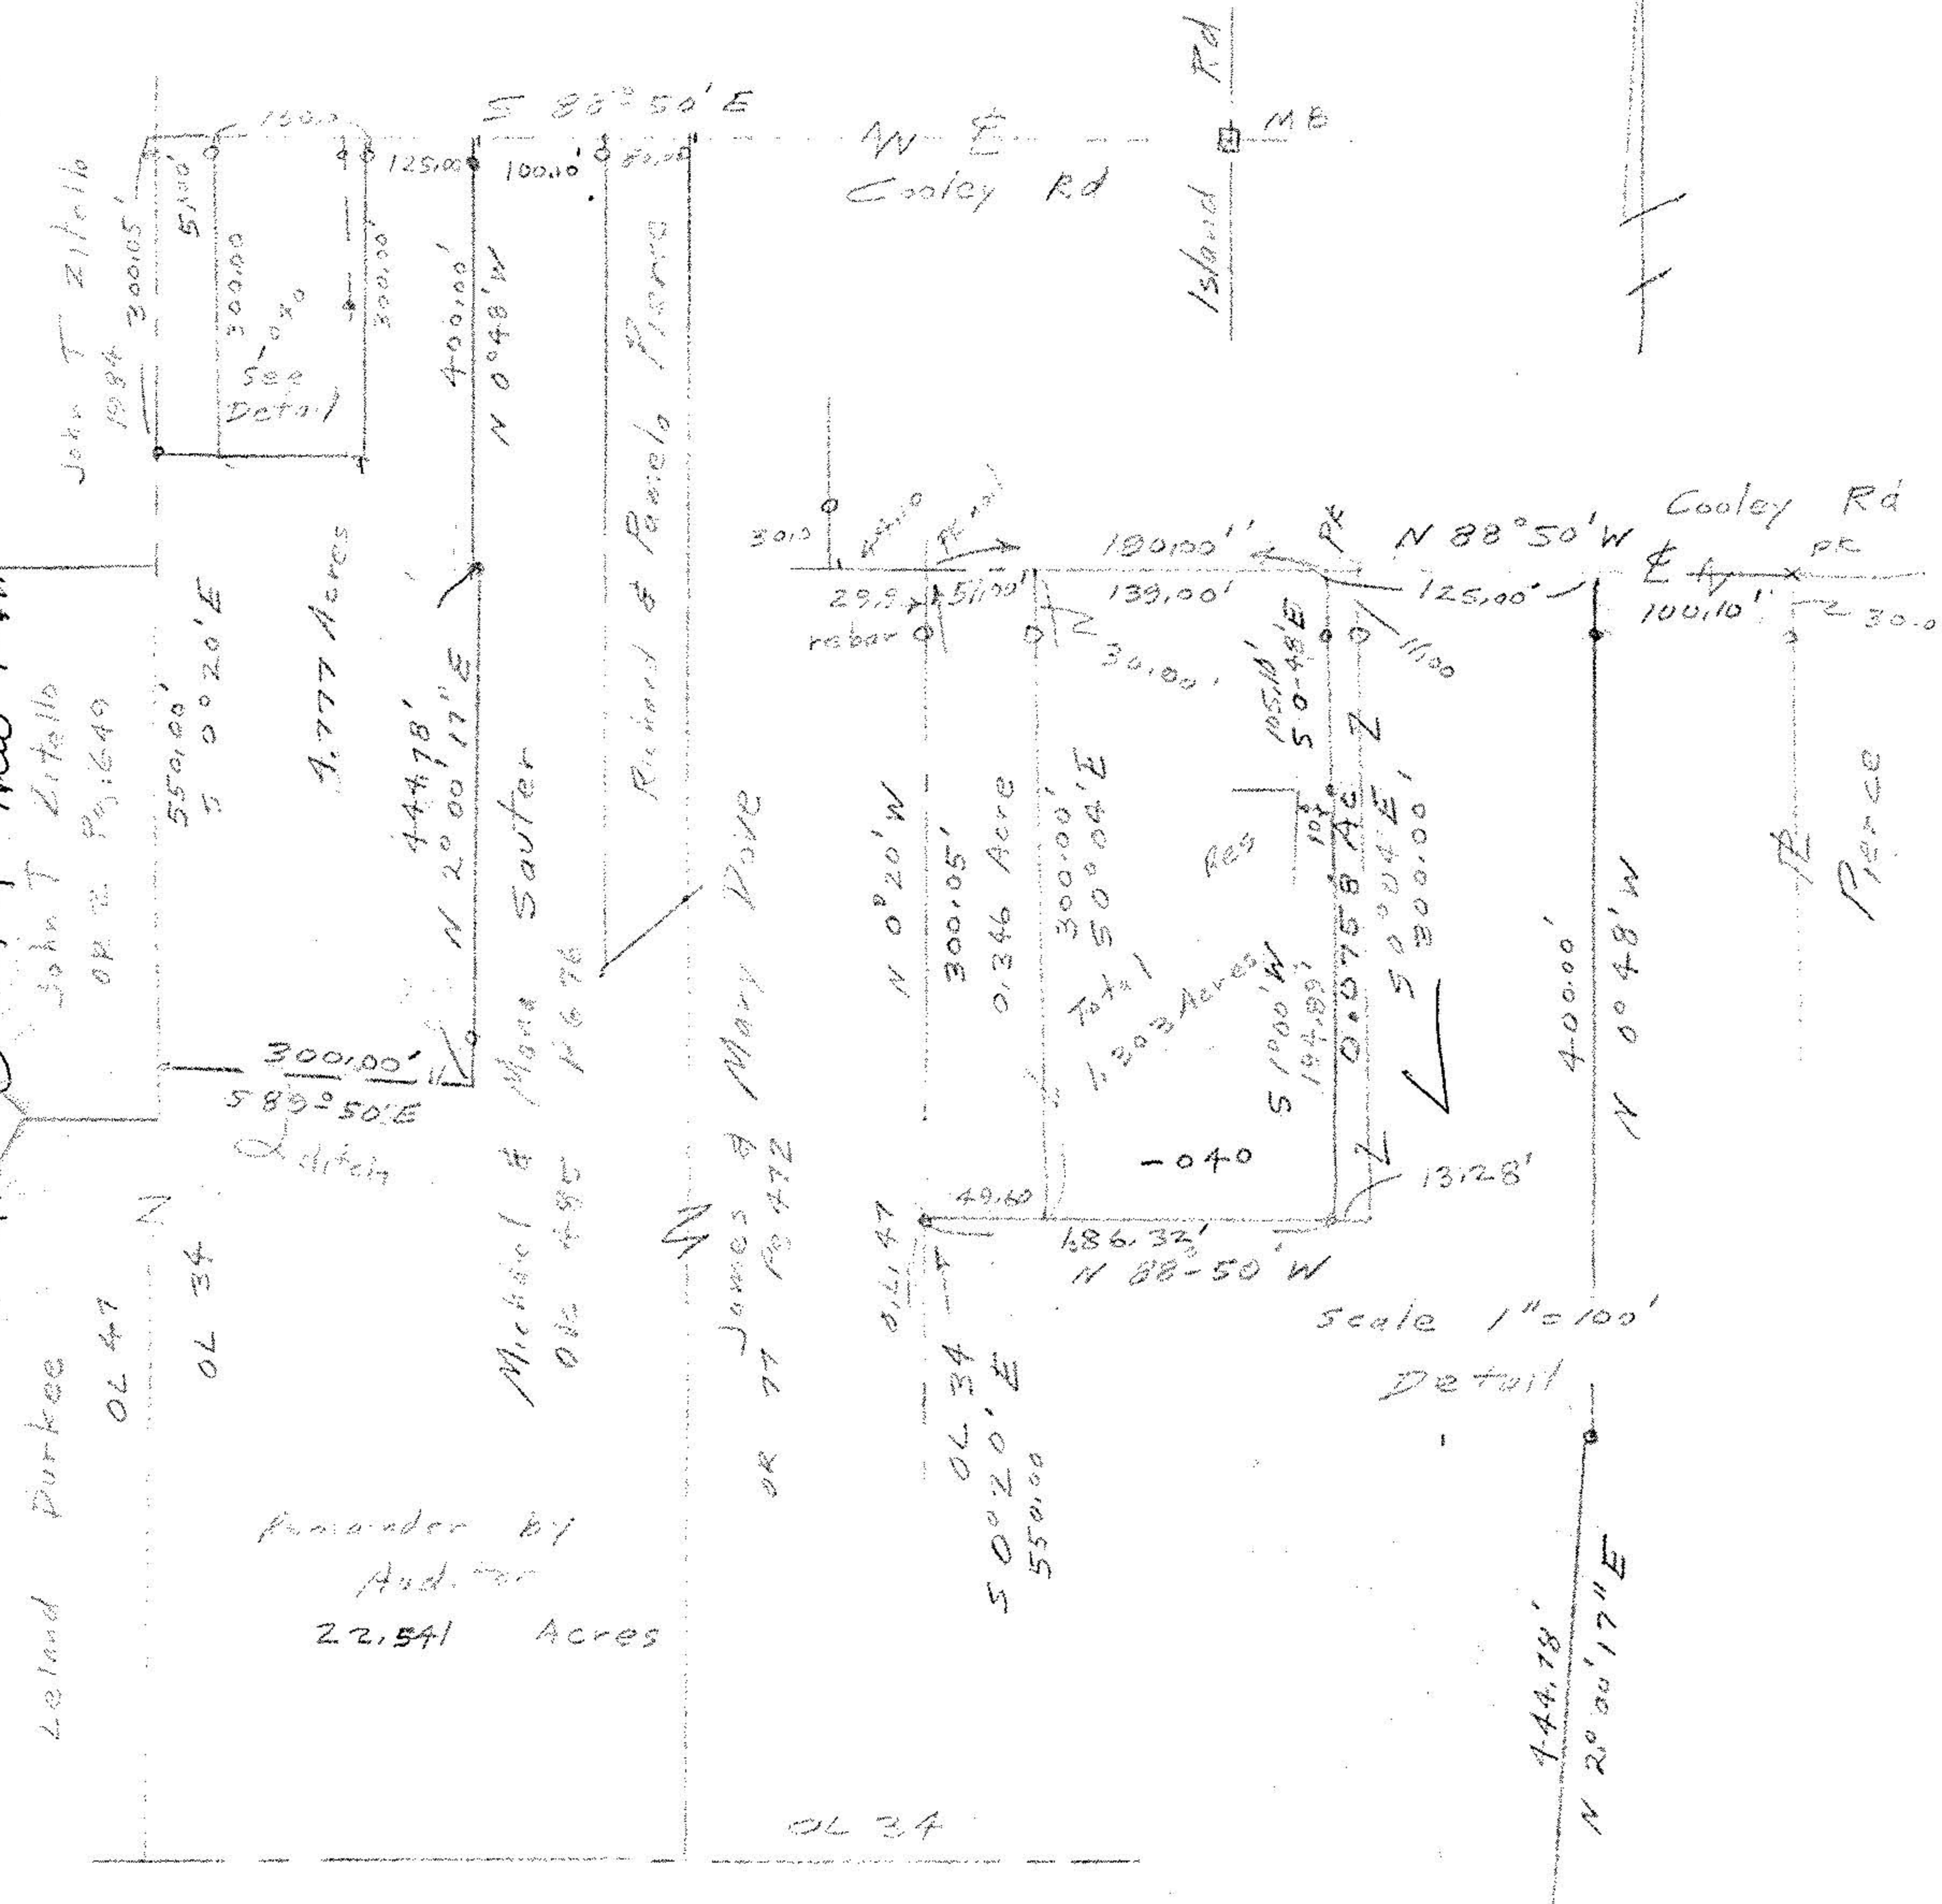 S 88° 50' E
Cooley Rd
Island Rd
MB
125.00
100.10'
80.00
300.05'
51.00'
300.00
300.00'
See
Detail
400.00'
N 0°48'W
John T Zitello
1984
Richard & Pamela
John T Zitello
550.00'
S 0° 20' E
4.777 Acres
444.78'
N 2° 00' 17" E
300.00'
S 89° 50' E
ditch
Michael & Mona Sauter
P 676
James & Mary Dove
OR 77 Pg 472
Leland Durkee
OL 47
OL 34
Remainder by
Auditor
22.541 Acres
OL 34
30.0
180.00'
PK
N 88° 50' W
Cooley Rd
PK
29.9
51.00'
139.00'
125.00'
100.10'
30.0
rebar
30.00'
11.00
105.11'
S 0-48'E
N 0° 20' W
300.05'
0.346 Acre
300.00'
S 0° 04' E
Total
1.303 Acres
Res
S 1°00' W
194.89'
0.0758 Ac
S 0° 04' E
300.00'
400.00'
N 0° 48' W
Pierce
-040
49.60
13.28'
186.32'
N 88-50' W
O.L. 47
OL 34
S 0° 20' E
550.00
Scale 1"=100'
Detail
444.78'
N 2° 00' 17" E